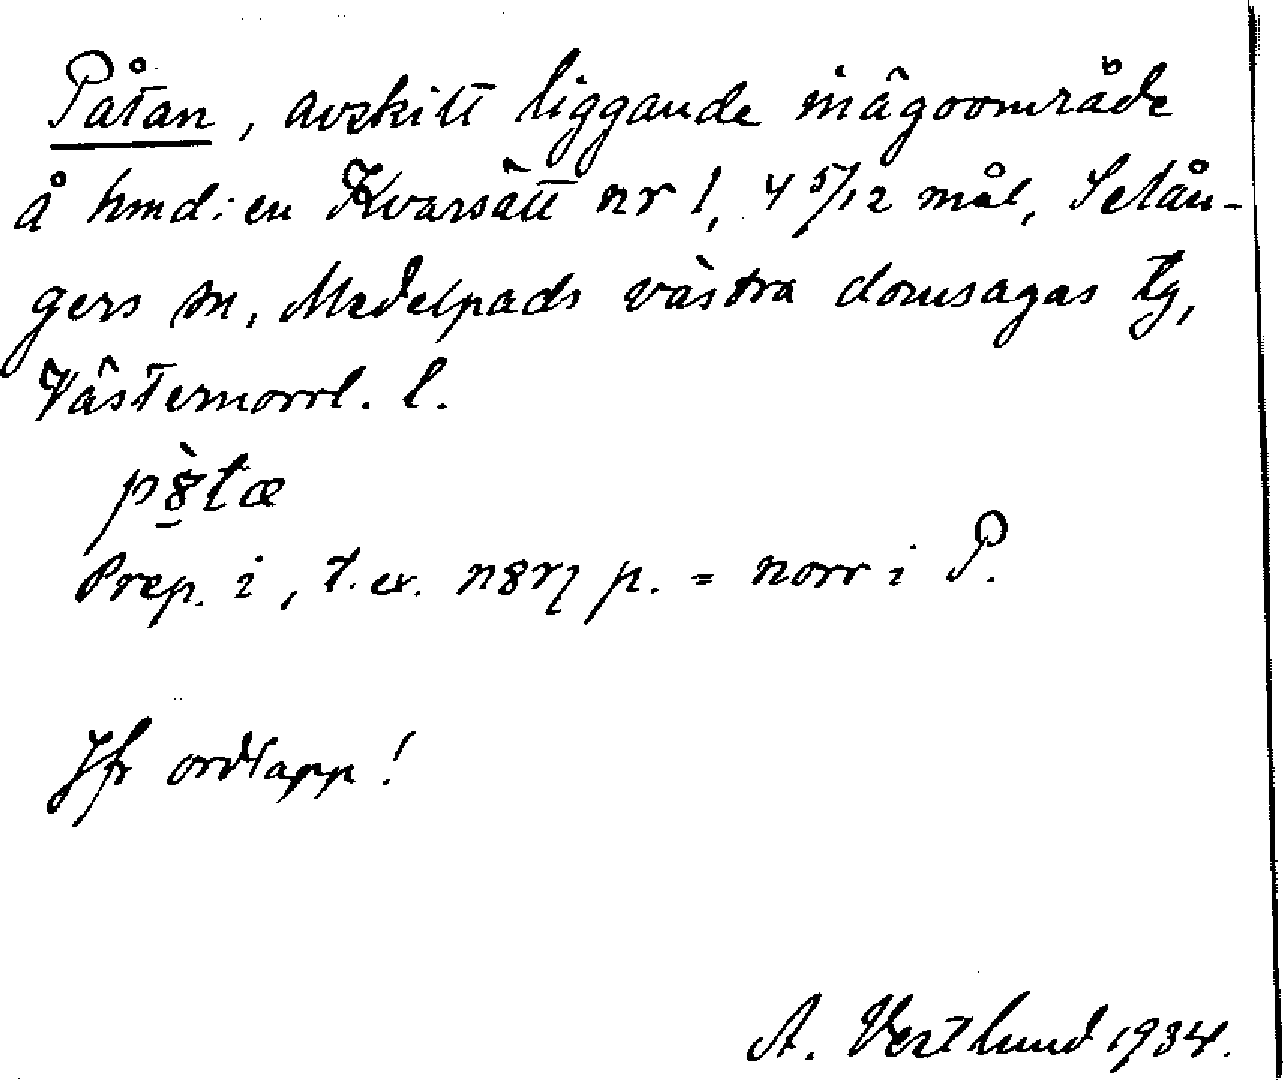 Påtan, avskilt liggande inägoområde
å hmd:en Kvarsätt nr 1, 4 5/12 mål, Selån-
gers sn, Medelpads västra domsagas tg,
Västernorrl. l.
pȣ̀tæ
Prep. i, t.ex. nȣrη p. = norr i P.
Jfr ordlapp!
A. Vestlund 1934.